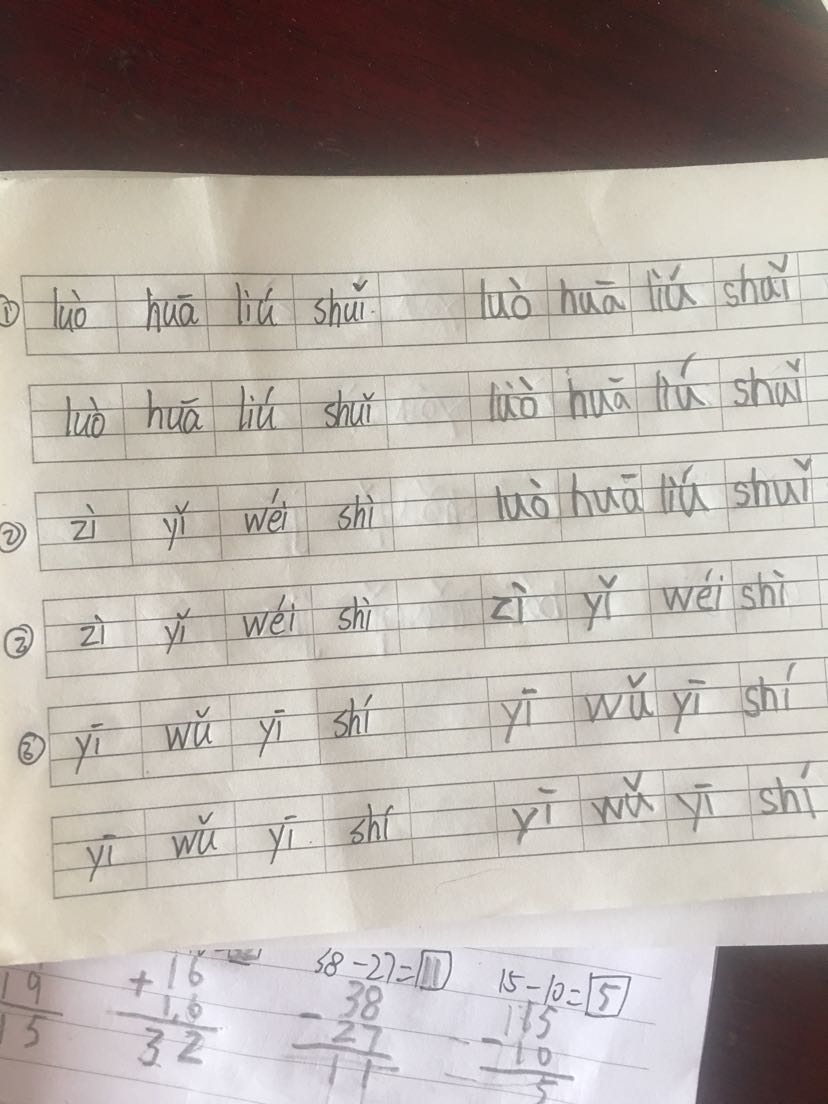 ① luò huā liú shuǐ luò huā liú shuǐ
luò huā liú shuǐ luò huā liú shuǐ
② zì yǐ wéi shì luò huā liú shuǐ
② zì yǐ wéi shì zì yǐ wéi shì
③ yī wǔ yī shí yī wǔ yī shí
yī wǔ yī shí yī wǔ yī shí
38-27=11 15-10=5
19 +16 -38 115
15 16 27 -10
32 11 5